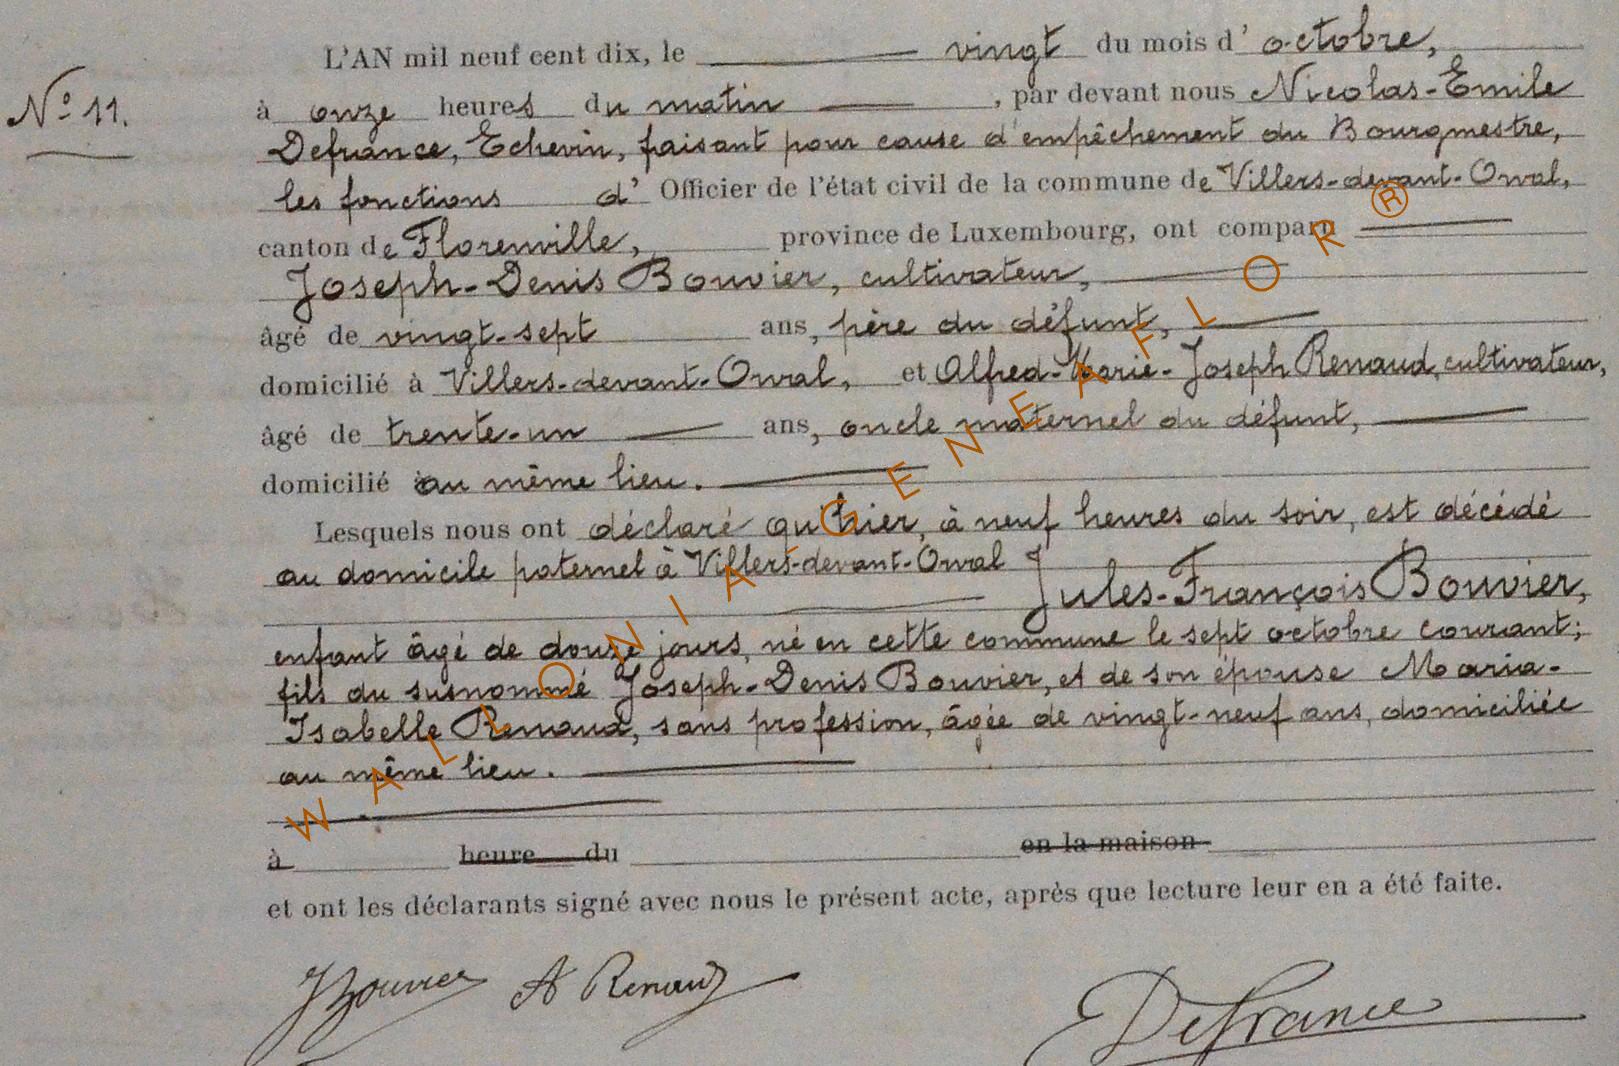 L'AN mil neuf cent dix, le vingt du mois d' octobre,
N° 11.
à onze heures du matin , par devant nous Nicolas-Emile
Defrance, Echevin, faisant pour cause d'empêchement du Bourgmestre,
les fonctions d' Officier de l'état civil de la commune de Villers-devant-Orval,
canton de Florenville, province de Luxembourg, ont comparu
Joseph-Denis Bouvier, cultivateur,
âgé de vingt-sept ans, père du défunt,
domicilié à Villers-devant-Orval, et Alfred-Marie-Joseph Renaud, cultivateur,
âgé de trente-un ans, oncle maternel du défunt,
domicilié au même lieu.
Lesquels nous ont déclaré qu'hier, à neuf heures du soir, est décédé
au domicile paternel à Villers-devant-Orval
Jules-François Bouvier,
enfant âgé de douze jours, né en cette commune le sept octobre courant;
fils du susnommé Joseph-Denis Bouvier, et de son épouse Maria-
Isabelle Renaud, sans profession, âgée de vingt-neuf ans, domiciliée
au même lieu.
à heure du en la maison
et ont les déclarants signé avec nous le présent acte, après que lecture leur en a été faite.
JBouvier A Renaud Defrance
WALLONIA-GENEAFLOR®